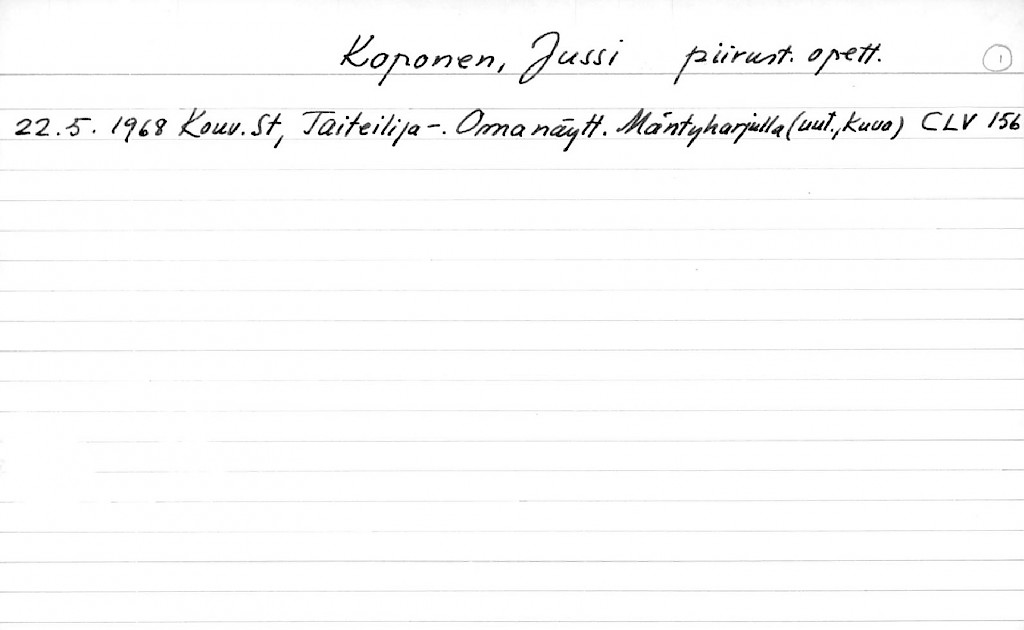 Koponen, Jussi piirust. opett. 1
22.5. 1968 Kouv. St, Taiteilija-. Oma näytt. Mäntyharjulla (uut., kuva) CLV 156